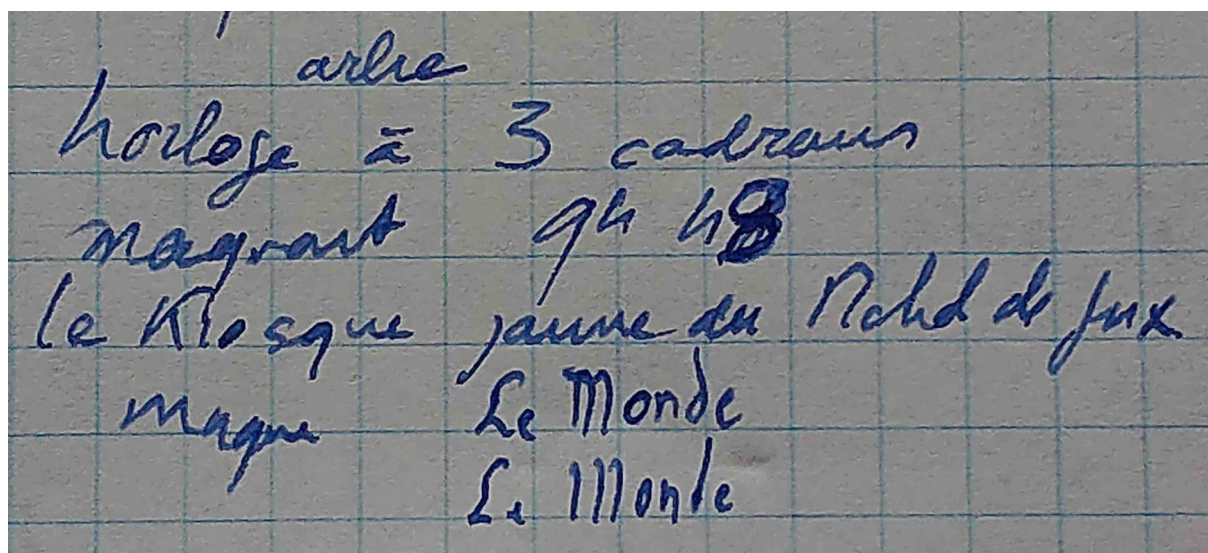 arbre
horloge à 3 cadrans
maquant 9h 48
le Kiosque jaune du Nohd de Jux
maque Le Monde
Le Monde